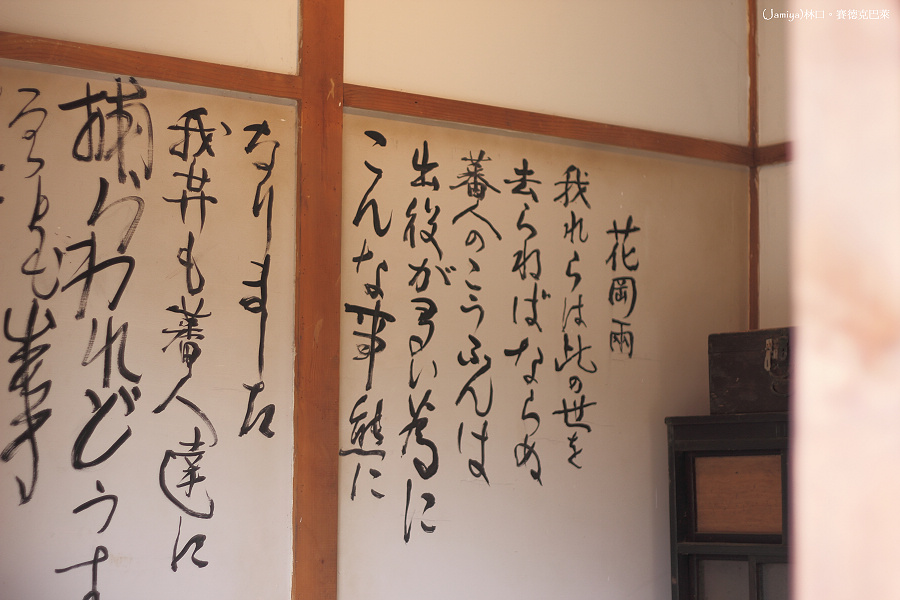 花岡兩
我れらは此の世を
去らねばならぬ
蕃人のこうふんは
出役が多い為に
こんな事態に
なりました
我等も蕃人達に
捕らわれどうす
ることも出来
(Jamiya)林口。賽德克巴萊